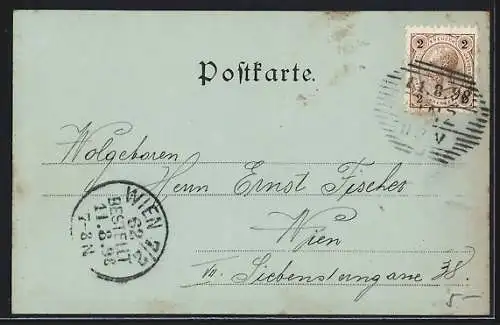 2 2
Postkarte.
11.8.98
LINZ
Wolgeboren
Herrn Ernst Fischer
Wien
VII. Siebensterngasse 38.
WIEN 7/2
62
BESTELLT
11.8.98
7-8N
5-